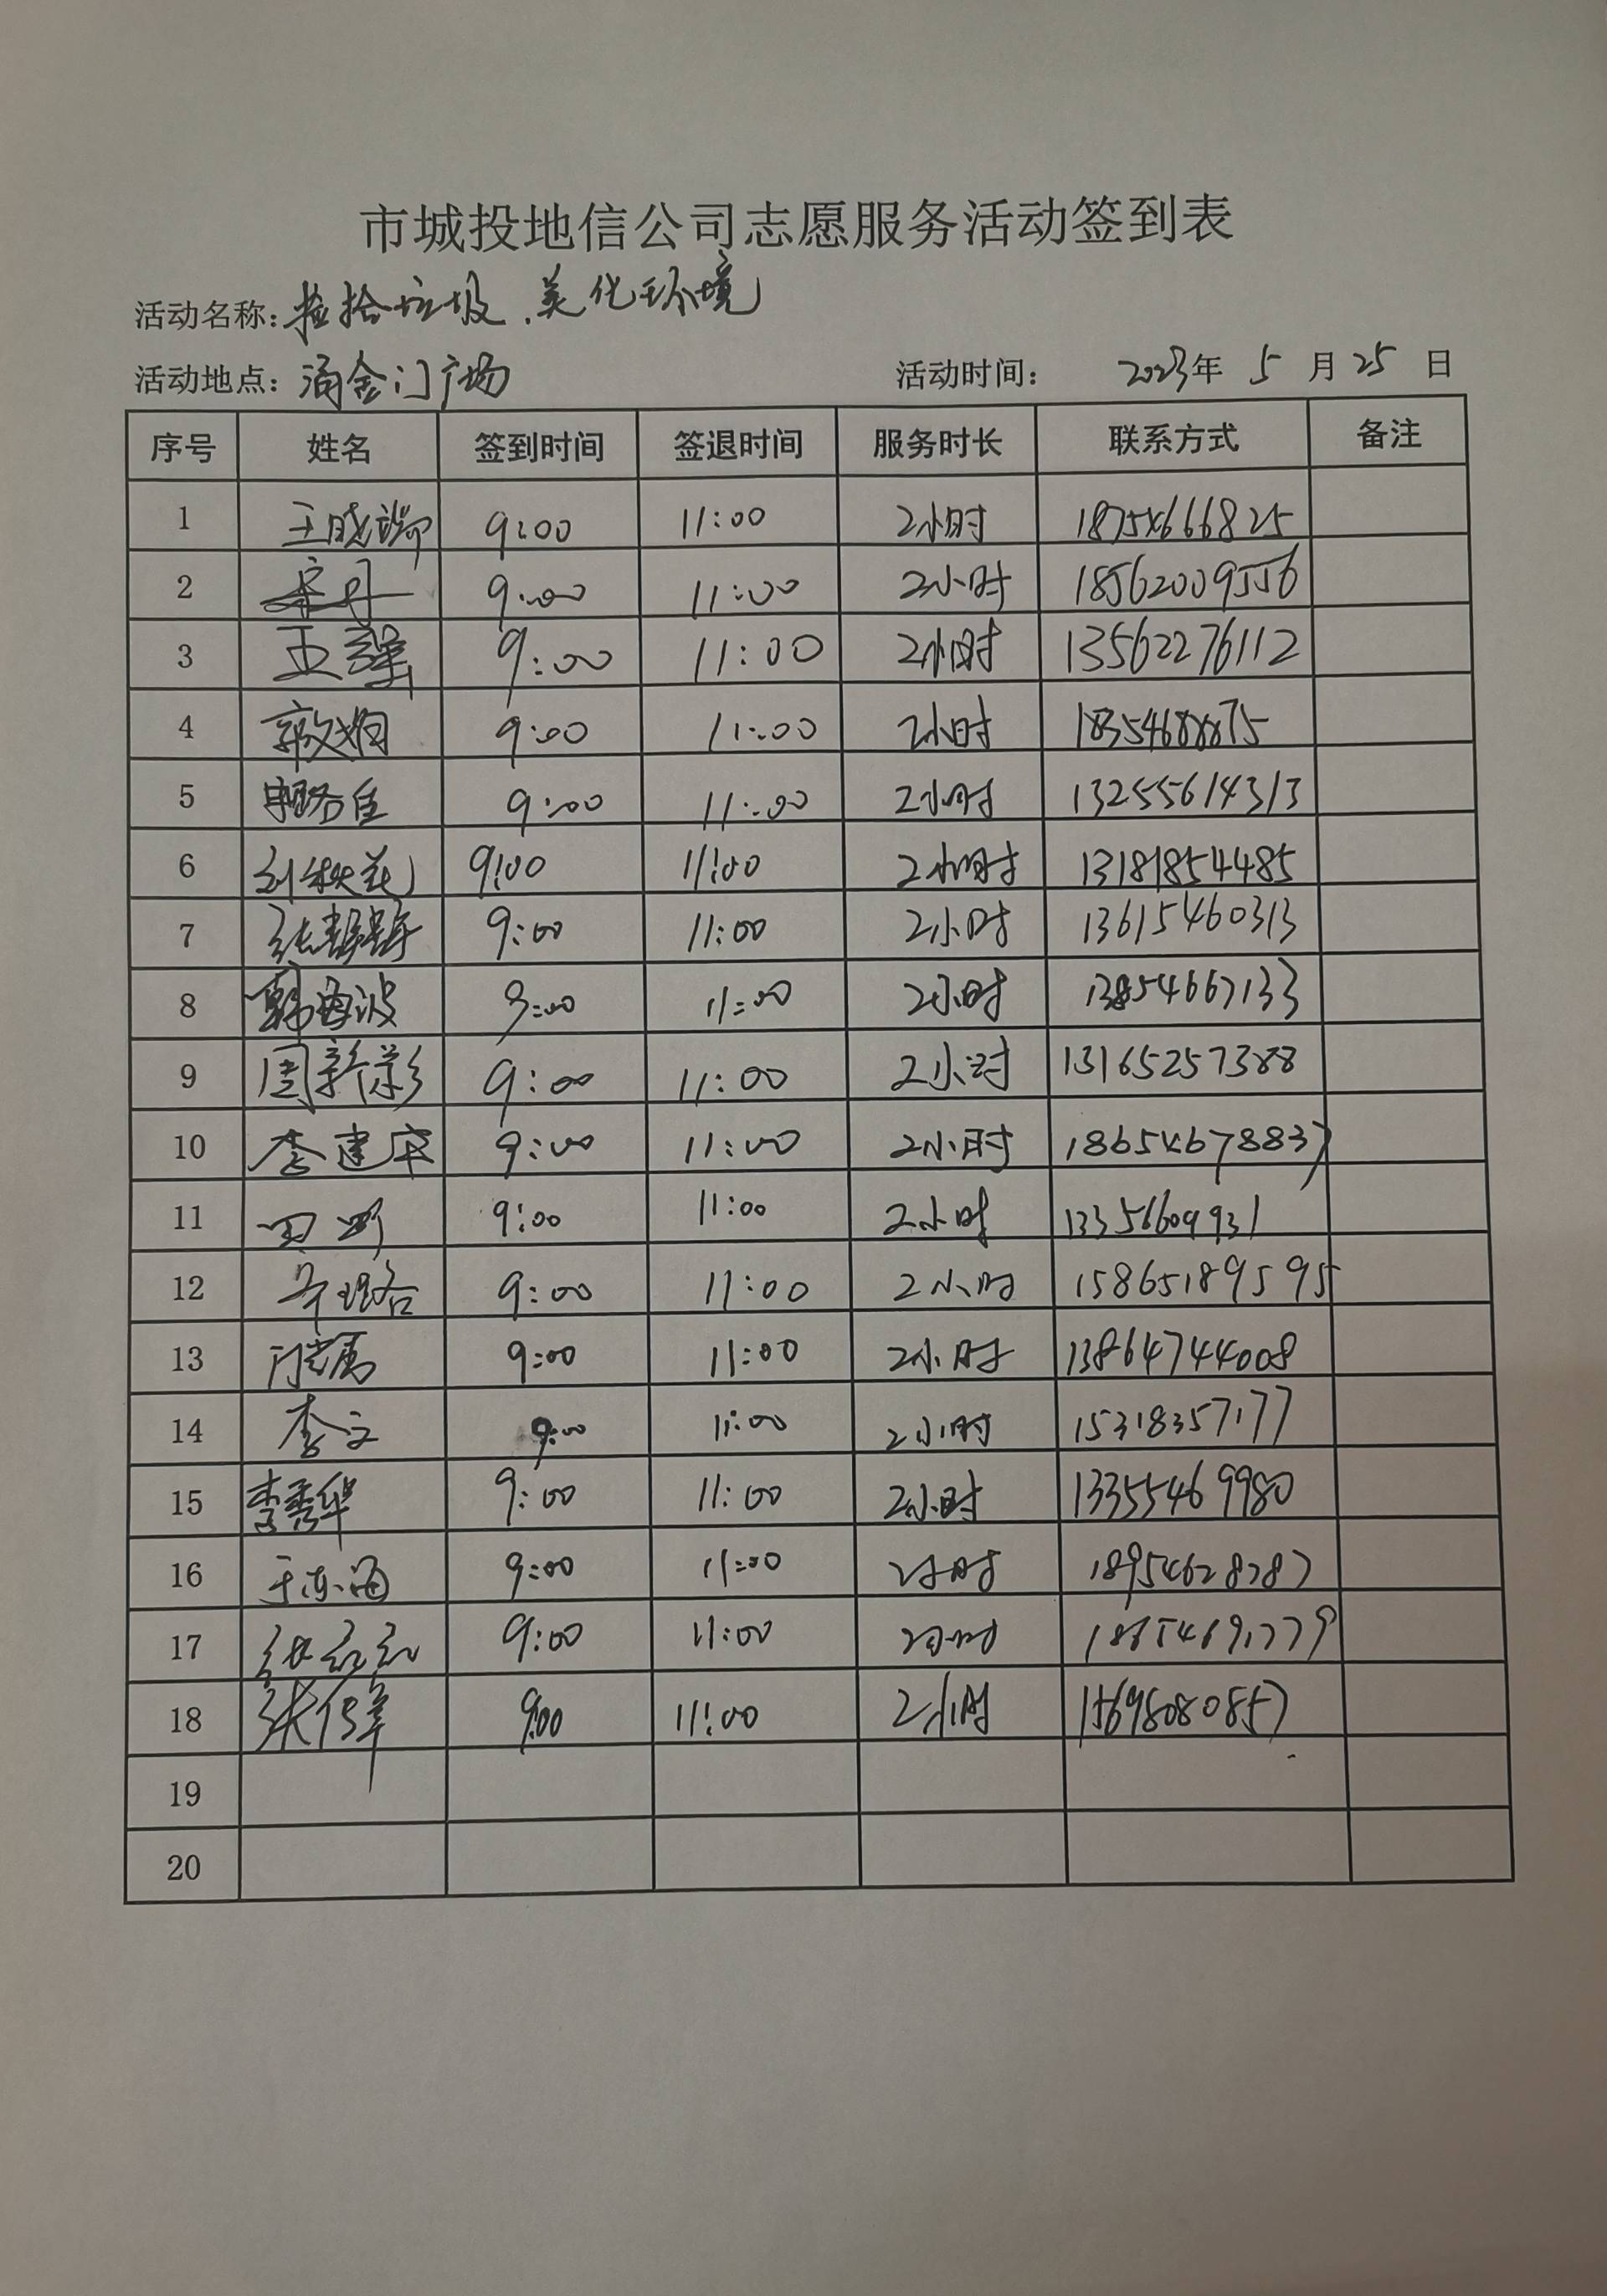 市城投地信公司志愿服务活动签到表
活动名称：捡拾垃圾、美化环境
活动地点：涌金门广场 活动时间： 2023年 5 月 25 日
序号 姓名 签到时间 签退时间 服务时长 联系方式 备注
1 王晓瑞 9:00 11:00 2小时 18754666825
2 9:00 11:00 2小时 18562009556
3 王强 9:00 11:00 2小时 13562276112
4 9:00 11:00 2小时
5 9:00 11:00 2小时 13255614313
6 刘秋花 9:00 11:00 2小时 13181854485
7 张静静 9:00 11:00 2小时 13615460313
8 韩海波 9:00 11:00 2小时 13854667133
9 周新彩 9:00 11:00 2小时 13165257388
10 李建 9:00 11:00 2小时 18654678837
11 田 9:00 11:00 2小时 13356609931
12 9:00 11:00 2小时 15865189595
13 9:00 11:00 2小时 13864744008
14 李文 9:00 11:00 2小时 15318357177
15 李秀华 9:00 11:00 2小时 13355469980
16 于东海 9:00 11:00 2小时 18954628287
17 张 9:00 11:00 2小时
18 张传军 9:00 11:00 2小时 15698080857
19
20